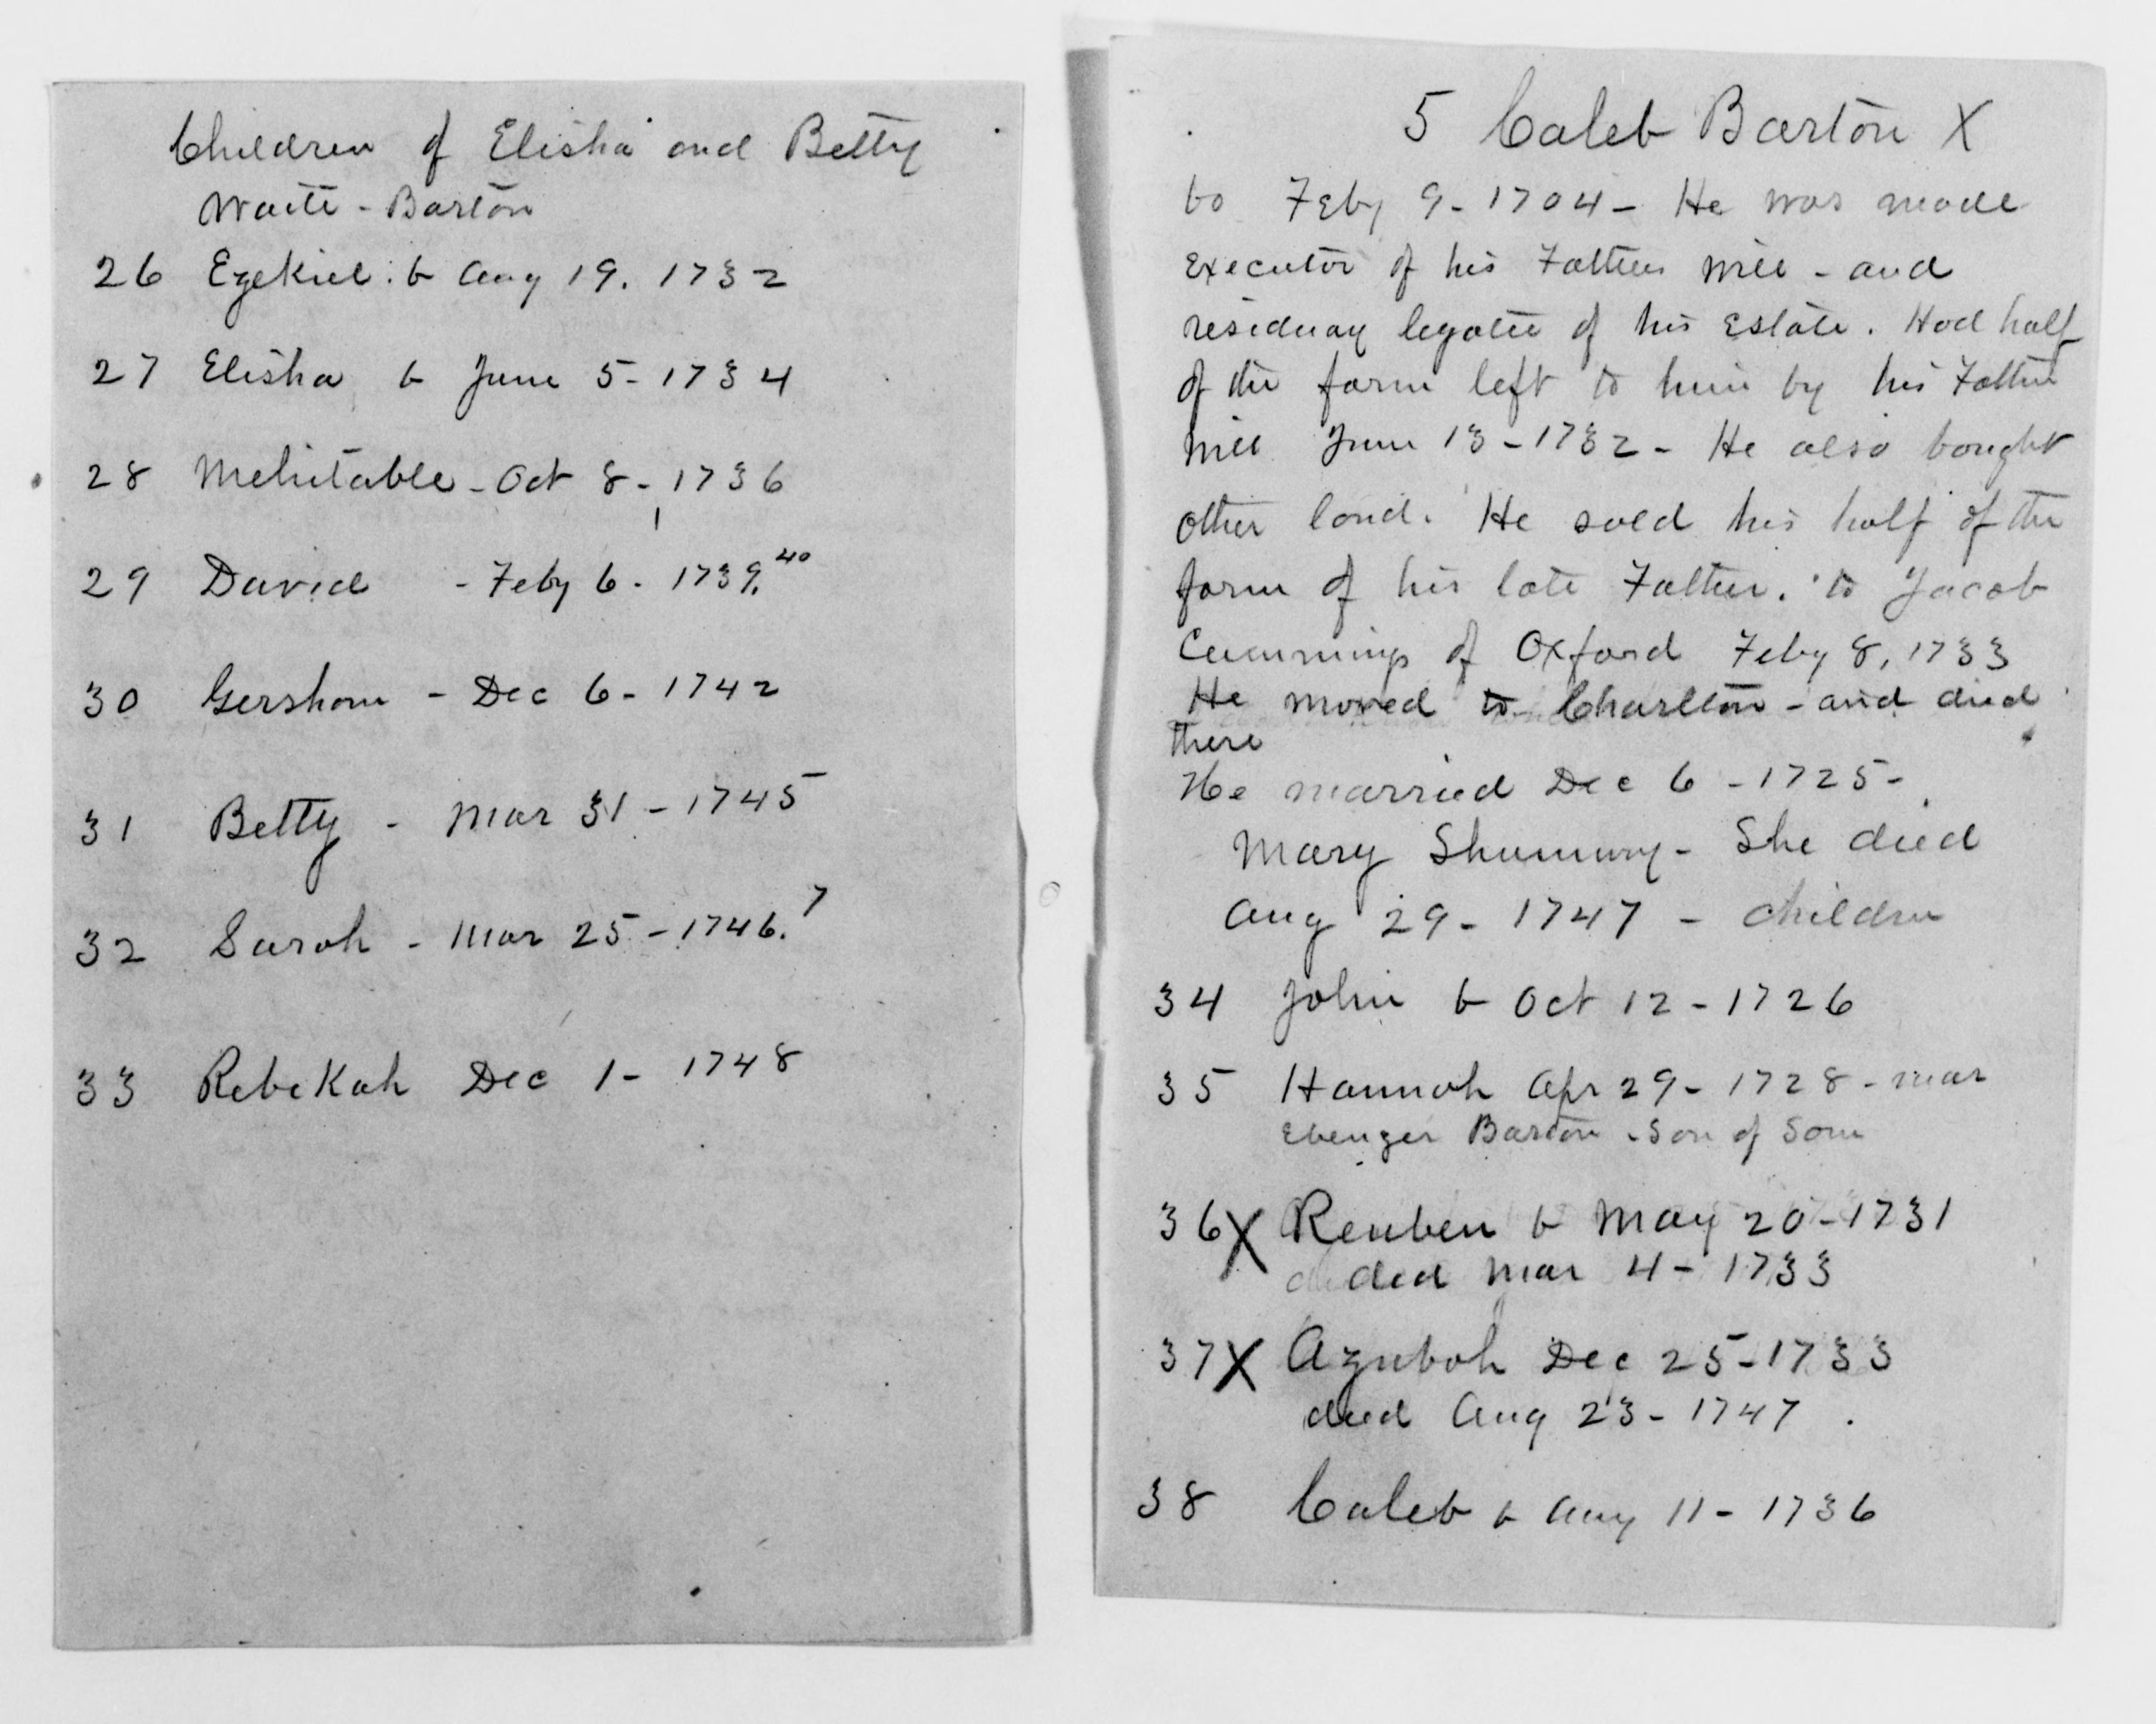 Children of Elisha and Betty
Waite - Barton
26 Ezekiel : b Aug 19. 1732
27 Elisha b June 5 - 1734
28 Mehitable - Oct 8 - 1736
29 David - Feby 6 - 1739.40
30 Gershom - Dec 6 - 1742
31 Betty - Mar 31 - 1745
32 Sarah - Mar 25 - 1746.7
33 RebeKah Dec 1 - 1748
5 Caleb Barton X
bo Feby 9 - 1704 - He was made
Executor of his Fathers will - and
residuay legatee of his Estate. Had half
of the farm left to him by his Father
will June 13 - 1732 - He also bought
other land. He sold his half of the
farm of his late Father. to Jacob
Cummings of Oxford Feby 8, 1733
He moved to Charlton - and died
there
He married Dec 6 - 1725 -
Mary Shumway - She died
Aug 29 - 1747 - children
34 John b Oct 12 - 1726
35 Hannah Apr 29 - 1728 - mar
Ebenezer Barton - Son of Sam
36 X Reuben b May 20 - 1731
died Mar 4 - 1733
37 X Azubah Dec 25 - 1733
died Aug 23 - 1747
38 Caleb b Aug 11 - 1736